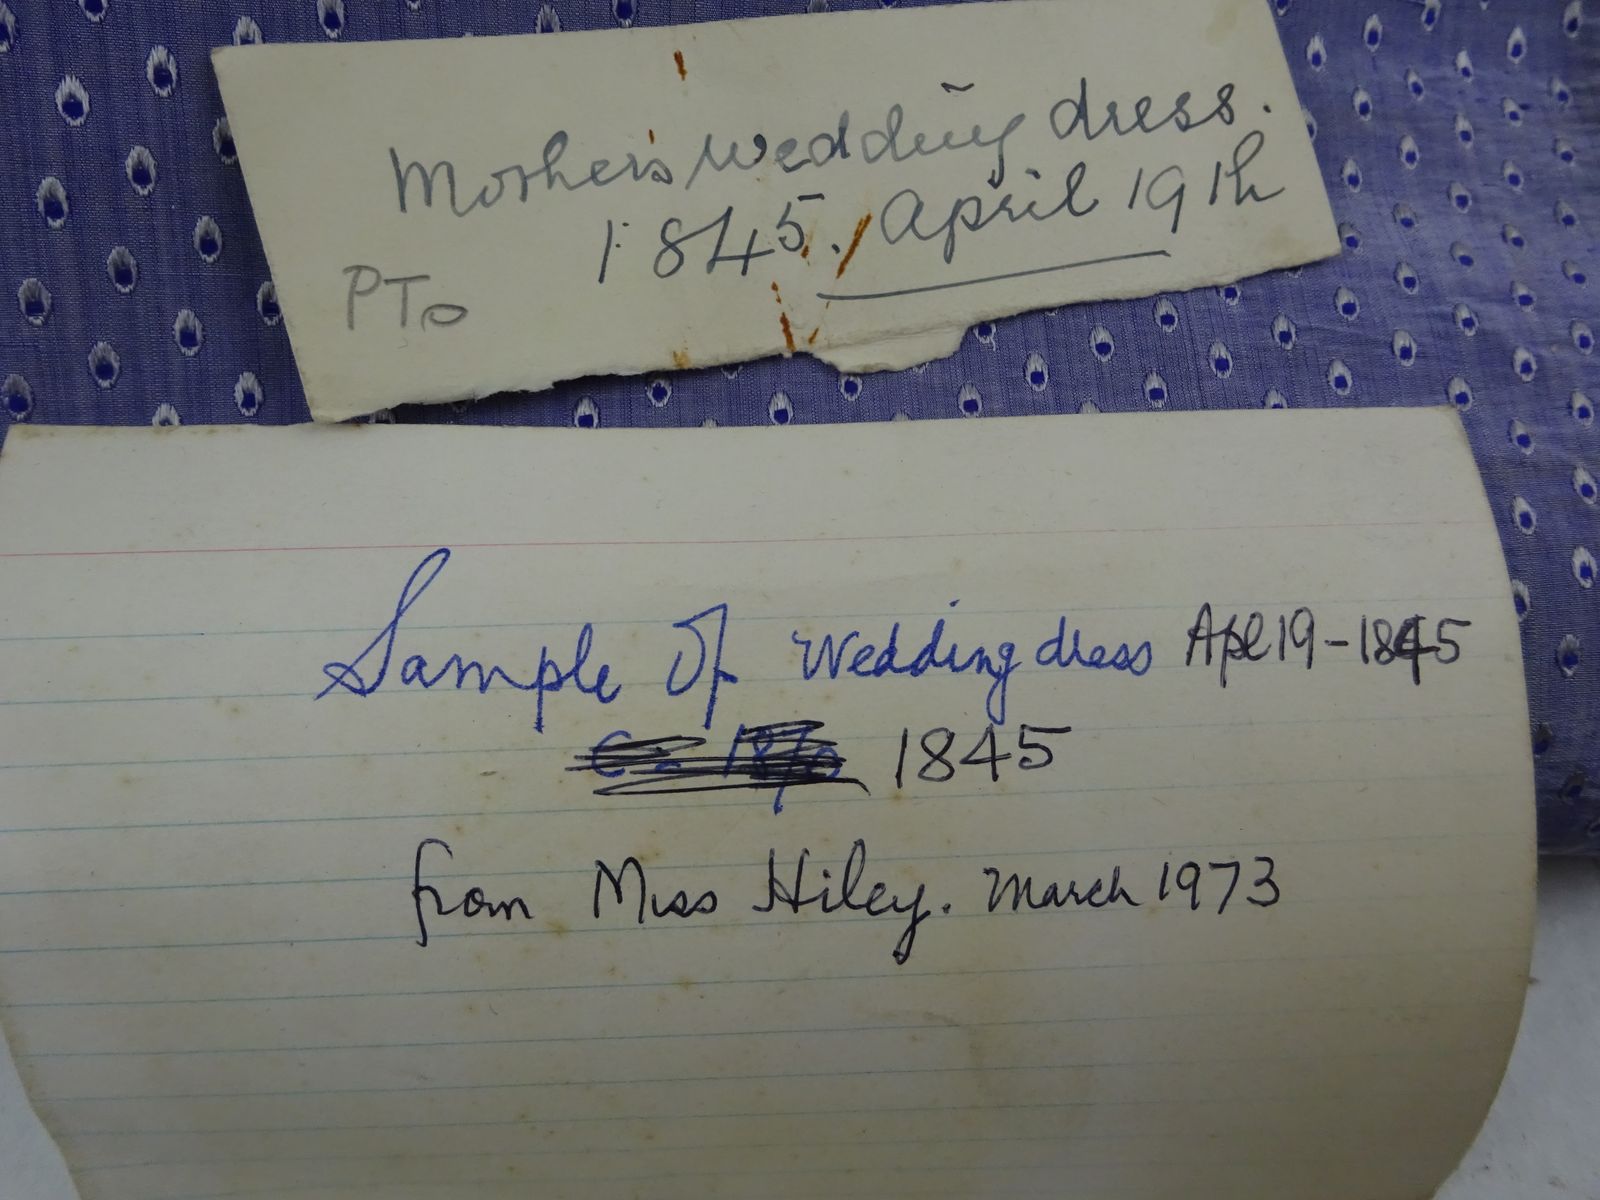 Mother's wedding dress.
1845. April 19th
PTO
Sample Of Wedding dress Apl 19-1845
1845
from Miss Hiley. March 1973